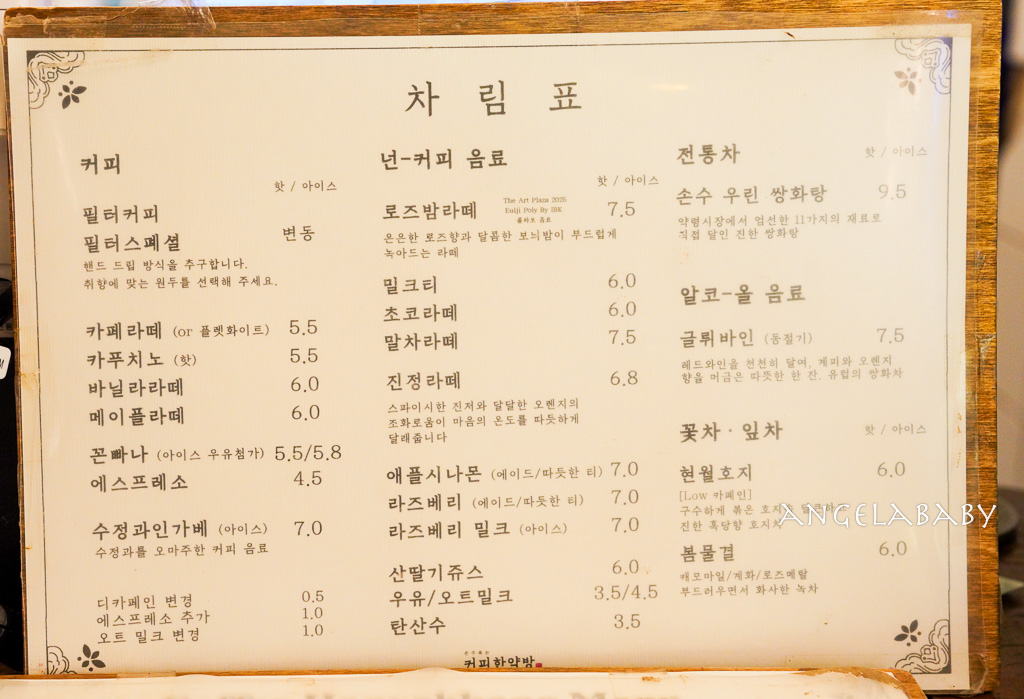 차 림 표
커피
핫 / 아이스
필터커피
필터스페셜 변동
핸드 드립 방식을 추구합니다.
취향에 맞는 원두를 선택해 주세요.
카페라떼 (or 플렛화이트) 5.5
카푸치노 (핫) 5.5
바닐라라떼 6.0
메이플라떼 6.0
꼰빠나 (아이스 우유첨가) 5.5/5.8
에스프레소 4.5
수정과인가베 (아이스) 7.0
수정과를 오마주한 커피 음료
디카페인 변경 0.5
에스프레소 추가 1.0
오트 밀크 변경 1.0
넌-커피 음료
핫 / 아이스
The Art Plaza 2025
Eulji Poly By IBK
콜라보 음료
로즈밤라떼 7.5
은은한 로즈향과 달콤한 보늬밤이 부드럽게
녹아드는 라떼
밀크티 6.0
초코라떼 6.0
말차라떼 7.5
진정라떼 6.8
스파이시한 진저와 달달한 오렌지의
조화로움이 마음의 온도를 따듯하게
달래줍니다
애플시나몬 (에이드/따듯한 티) 7.0
라즈베리 (에이드/따듯한 티) 7.0
라즈베리 밀크 (아이스) 7.0
산딸기쥬스 6.0
우유/오트밀크 3.5/4.5
탄산수 3.5
커피한약방
전통차
핫 / 아이스
손수 우린 쌍화탕 9.5
약령시장에서 엄선한 11가지의 재료로
직접 달인 진한 쌍화탕
알코-올 음료
글뤼바인 (동절기) 7.5
레드와인을 천천히 달여, 계피와 오렌지
향을 머금은 따뜻한 한 잔. 유럽의 쌍화차
꽃차 · 잎차
핫 / 아이스
현월호지 6.0
[Low 카페인]
구수하게 볶은 호지
진한 흑당향 호지차
봄물결 6.0
캐모마일/계화/로즈메탈
부드러우면서 화사한 녹차
ANGELABABY